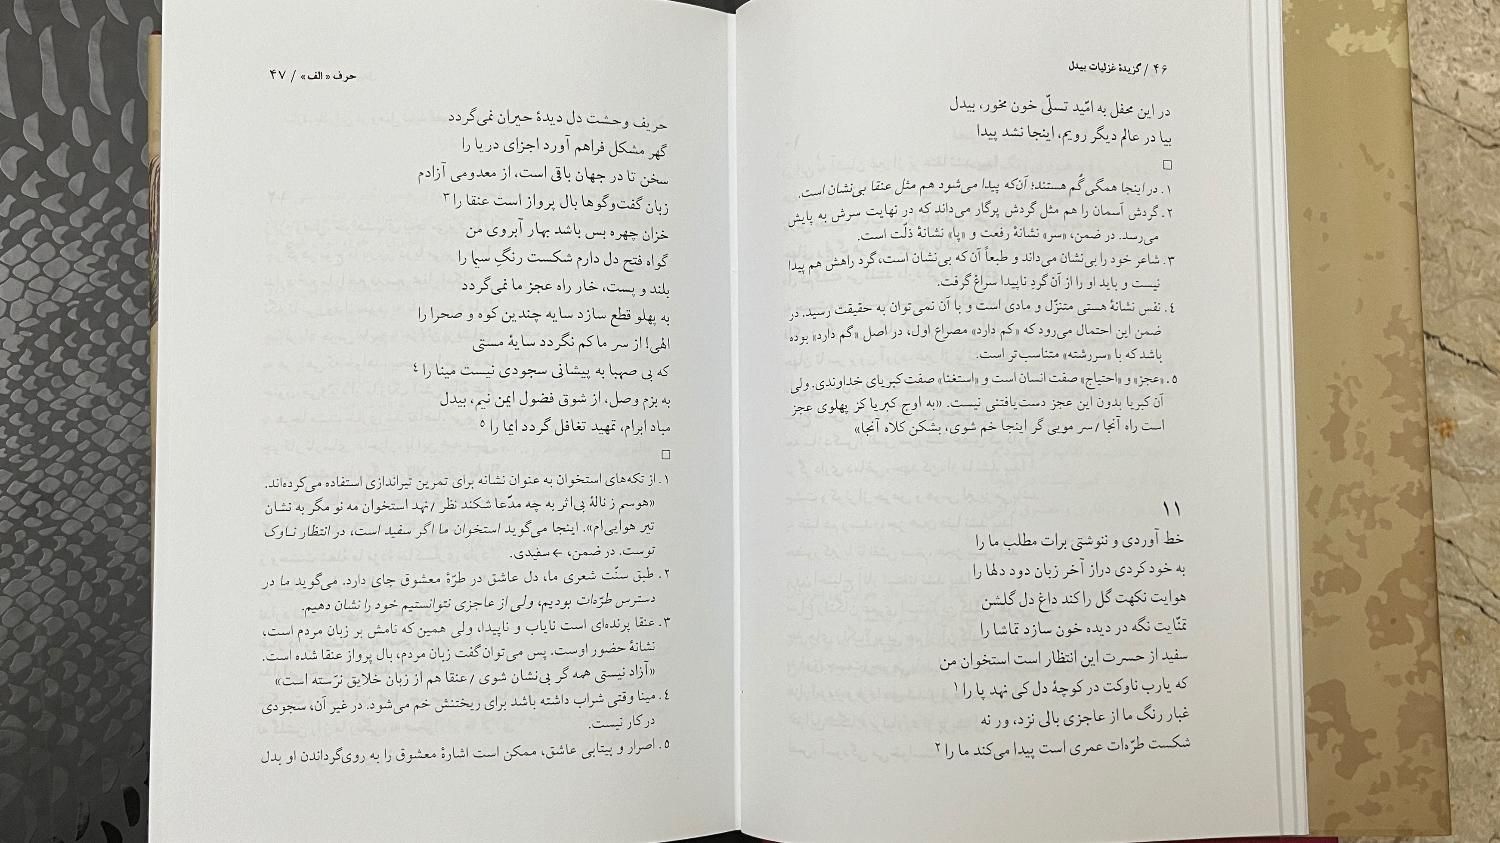 ۴۶ / گزیدهٔ غزلیات بیدل
در این محفل به امّید تسلّی خون مخور، بیدل
بیا در عالم دیگر رویم، اینجا نشد پیدا
□
۱. در اینجا همگی گُم هستند؛ آن‌که پیدا می‌شود هم مثل عنقا بی‌نشان است.
۲. گردش آسمان را هم مثل گردش پرگار می‌داند که در نهایت سرش به پایش
می‌رسد. در ضمن، «سر» نشانهٔ رفعت و «پا» نشانهٔ ذلّت است.
۳. شاعر خود را بی‌نشان می‌داند و طبعاً آن که بی‌نشان است، گرد راهش هم پیدا
نیست و باید او را از آن گردِ ناپیدا سراغ گرفت.
٤. نفس نشانهٔ هستی متنزّل و مادی است و با آن نمی‌توان به حقیقت رسید. در
ضمن این احتمال می‌رود که «کم دارد» مصراع اول، در اصل «گم دارد» بوده
باشد که با «سررشته» متناسب‌تر است.
۵. «عجز» و «احتیاج» صفت انسان است و «استغنا» صفت کبریای خداوندی. ولی
آن کبریا بدون این عجز دست‌یافتنی نیست. «به اوج کبریا کز پهلوی عجز
است راه آنجا / سر مویی گر اینجا خم شوی، بشکن کلاه آنجا»
۱۱
خط آوردی و ننوشتی برات مطلب ما را
به خود کردی دراز آخر زبان دود دلها را
هوایت نکهت گل را کند داغ دل گلشن
تمنّایت نگه در دیده خون سازد تماشا را
سفید از حسرت این انتظار است استخوان من
که یارب ناوکت در کوچهٔ دل کی نهد پا را ۱
غبار رنگ ما از عاجزی بالی نزد، ور نه
شکست طرّه‌ات عمری است پیدا می‌کند ما را ۲
حرف «الف» / ۴۷
حریف وحشت دل دیدهٔ حیران نمی‌گردد
گهر مشکل فراهم آورد اجزای دریا را
سخن تا در جهان باقی است، از معدومی آزادم
زبان گفت‌وگوها بال پرواز است عنقا را ۳
خزان چهره بس باشد بهار آبروی من
گواه فتح دل دارم شکست رنگِ سیما را
بلند و پست، خار راه عجز ما نمی‌گردد
به پهلو قطع سازد سایه چندین کوه و صحرا را
الهی! از سر ما کم نگردد سایهٔ مستی
که بی صهبا به پیشانی سجودی نیست مینا را ٤
به بزم وصل، از شوق فضول ایمن نیم، بیدل
مباد ابرام، تمهید تغافل گردد ایما را ۵
□
۱. از تکه‌های استخوان به عنوان نشانه برای تمرین تیراندازی استفاده می‌کرده‌اند.
«هوسم ز نالهٔ بی‌اثر به چه مدّعا شکند نظر / نهد استخوان مه نو مگر به نشان
تیر هوایی‌ام». اینجا می‌گوید استخوان ما اگر سفید است، در انتظار ناوک
توست. در ضمن، ← سفیدی.
۲. طبق سنّت شعری ما، دل عاشق در طرّهٔ معشوق جای دارد. می‌گوید ما در
دسترس طرّه‌ات بودیم، ولی از عاجزی نتوانستیم خود را نشان دهیم.
۳. عنقا پرنده‌ای است نایاب و ناپیدا، ولی همین که نامش بر زبان مردم است،
نشانهٔ حضور اوست. پس می‌توان گفت زبان مردم، بال پرواز عنقا شده است.
«آزاد نیستی همه گر بی‌نشان شوی / عنقا هم از زبان خلایق نرَسته است»
٤. مینا وقتی شراب داشته باشد برای ریختنش خم می‌شود. در غیر آن، سجودی
در کار نیست.
۵. اصرار و بیتابی عاشق، ممکن است اشارهٔ معشوق را به روی‌گرداندن او بدل